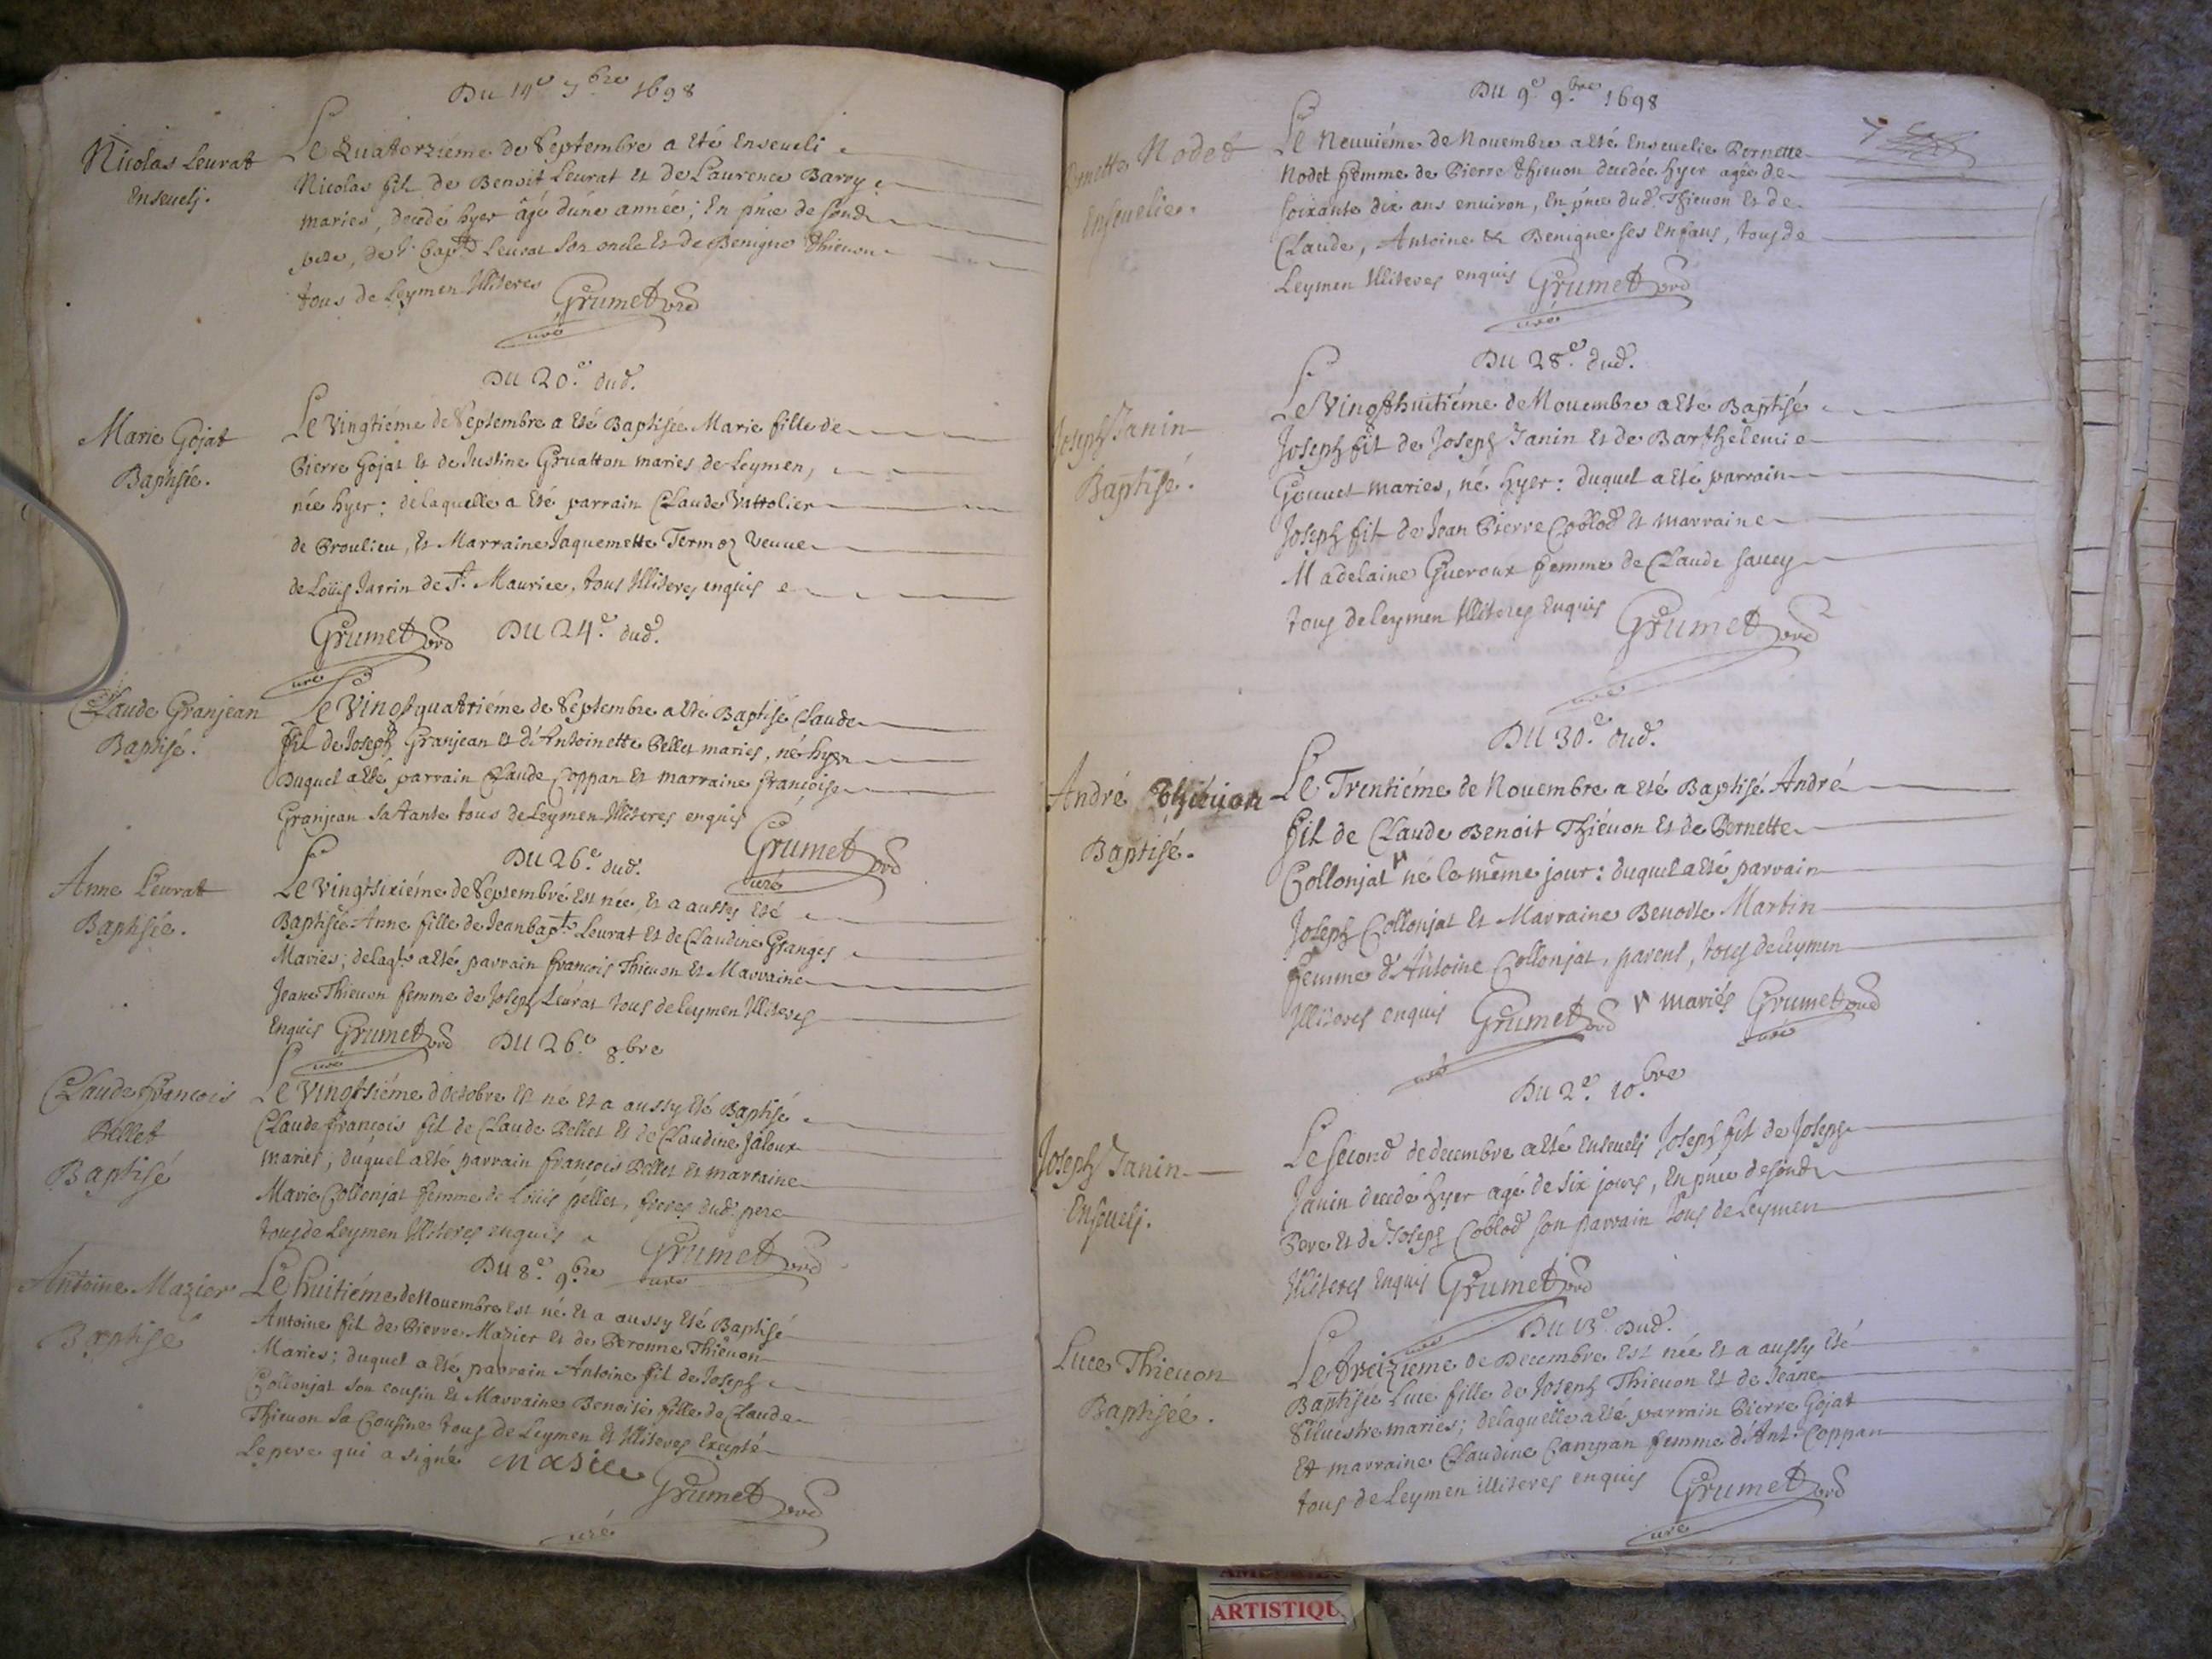 Du 14e 7bre 1698
Nicolas Leurat
Enseueli.
Le Quatorziéme de Septembre a eté Enseueli
Nicolas fil de Benoit Leurat et de Laurence Barry
mariés, decédé hyer âgé dúne année; En pnce de sond
pere, de Jn bapt Leurat son oncle Et de Benigne Thieuon
tous de Leymen Illiteres Grumet
curé
Du 20e dud.
Marie Gojat
Baptisée.
Le Vingtiéme de Septembre a eté Baptisée Marie fille de
Pierre Gojat Et de Justine Gruatton mariés de Leymen,
née hyer: de laquelle a eté parrain Claude Vuttolier
de Proulieu, Et Marraine Jaquemette Termoz Veuue
de Loüis Jarrin de St. Maurice, tous Illiteres enquis
Grumet Du 24e dud.
curé
Claude Granjean
Baptisé.
Le Vingtquatriéme de Septembre a eté Baptisé Claude
fil de Joseph Granjean et d'Antoinette Pellet mariés, né hyer
Duquel a eté parrain Claude Coppan Et marraine françoise
Granjean sa tante tous de Leymen Illiteres enquis
Grumet
curé
Du 26e dud.
Anne Leurat
Baptisée.
Le Vingtsixiéme de Septembre Est née, Et a aussy eté
Baptisée Anne fille de Jeanbapt. Leurat Et de Claudine Granges
Mariés; delaqle a eté parrain francois Thieuon Et Marraine
Jeane Thieuon femme de Joseph Leurat tous de Leymen Illiteres
Enquis Grumet Du 26e 8bre
curé
Claude françois
Pellet
Baptisé
Le Vingtsiéme d'octobre Est né Et a aussy eté Baptisé
Claude françois fil de Claude Pellet Et de Claudine Jaloux
mariés; duquel a eté parrain françois Pellet Et marraine
Marie Collonjat femme de Loüis pellet, freres dud. pere
tous de Leymen Illiteres enquis Grumet
curé
Du 8e 9bre
Antoine Mazier
Baptisé
Le huitiéme de Nouembre est né Et a aussy Eté Baptisé
Antoine fil de Pierre Mazier et de Peronne Thieuon
Mariés; duquel a eté parrain Antoine fil de Joseph
Collonjat son cousin Et Marraine Benoite fille de Claude
Thieuon Sa Cousine tous de Leymen Et Illiteres Excepté
Le pere qui a signé Masiee Grumet
curé
Du 9e 9bre 1698
Nodet
Enseuelie.
Le Neuuiéme de Nouembre a eté Enseuelie Pernette
Nodet femme de Pierre Thieuon decedée hyer agée de
soixante dix ans enuiron, En pnce dud. Thieuon Et de
Claude, Antoine & Benigne ses Enfans, tous de
Leymen Illiteres enquis Grumet
curé
Du 28e dud.
Joseph Janin
Baptisé.
Le Vingthuitiéme de Nouembre a eté Baptisé
Joseph fil de Joseph Janin Et de Barthelemie
Gouuet mariés, né hyer: duquel a eté parrain
Joseph fil de Jean Pierre Coblod Et marraine
Madelaine Gueroux femme de Claude sauey
tous de leymen Illiteres Enquis Grumet
curé
Du 30e dud.
André Thieuon
Baptisé.
Le Trentiéme de Nouembre a eté Baptisé André
fil de Claude Benoit Thieuon Et de Pernette
Collonjat né le même jour: duquel a eté parrain
Joseph Collonjat et Marraine Benoite Martin
femme d'Antoine Collonjat, parens, tous de leymen
Illiteres enquis Grumet mariés Grumet
curé curé
Du 2e 10bre
Joseph Janin
Enseueli.
Le Second de decembre a eté Enseueli Joseph fil de Joseph
Janin decedé hyer agé de six jours, En pnce desond
Pere Et de Joseph Coblod son parrain tous de Leymen
Illiteres Enquis Grumet
curé
Du 13e Dud.
Luce Thieuon
Baptisée.
Le treiziéme de Decembre Est née Et a aussy eté
Baptisée Luce fille de Joseph Thieuon Et de Jeane
Siluestre mariés; delaquelle a eté parrain Pierre Gojat
Et marraine Claudine Campan femme d'Ant. Coppan
tous de Leymen illiteres enquis Grumet
curé
ARTISTIQU